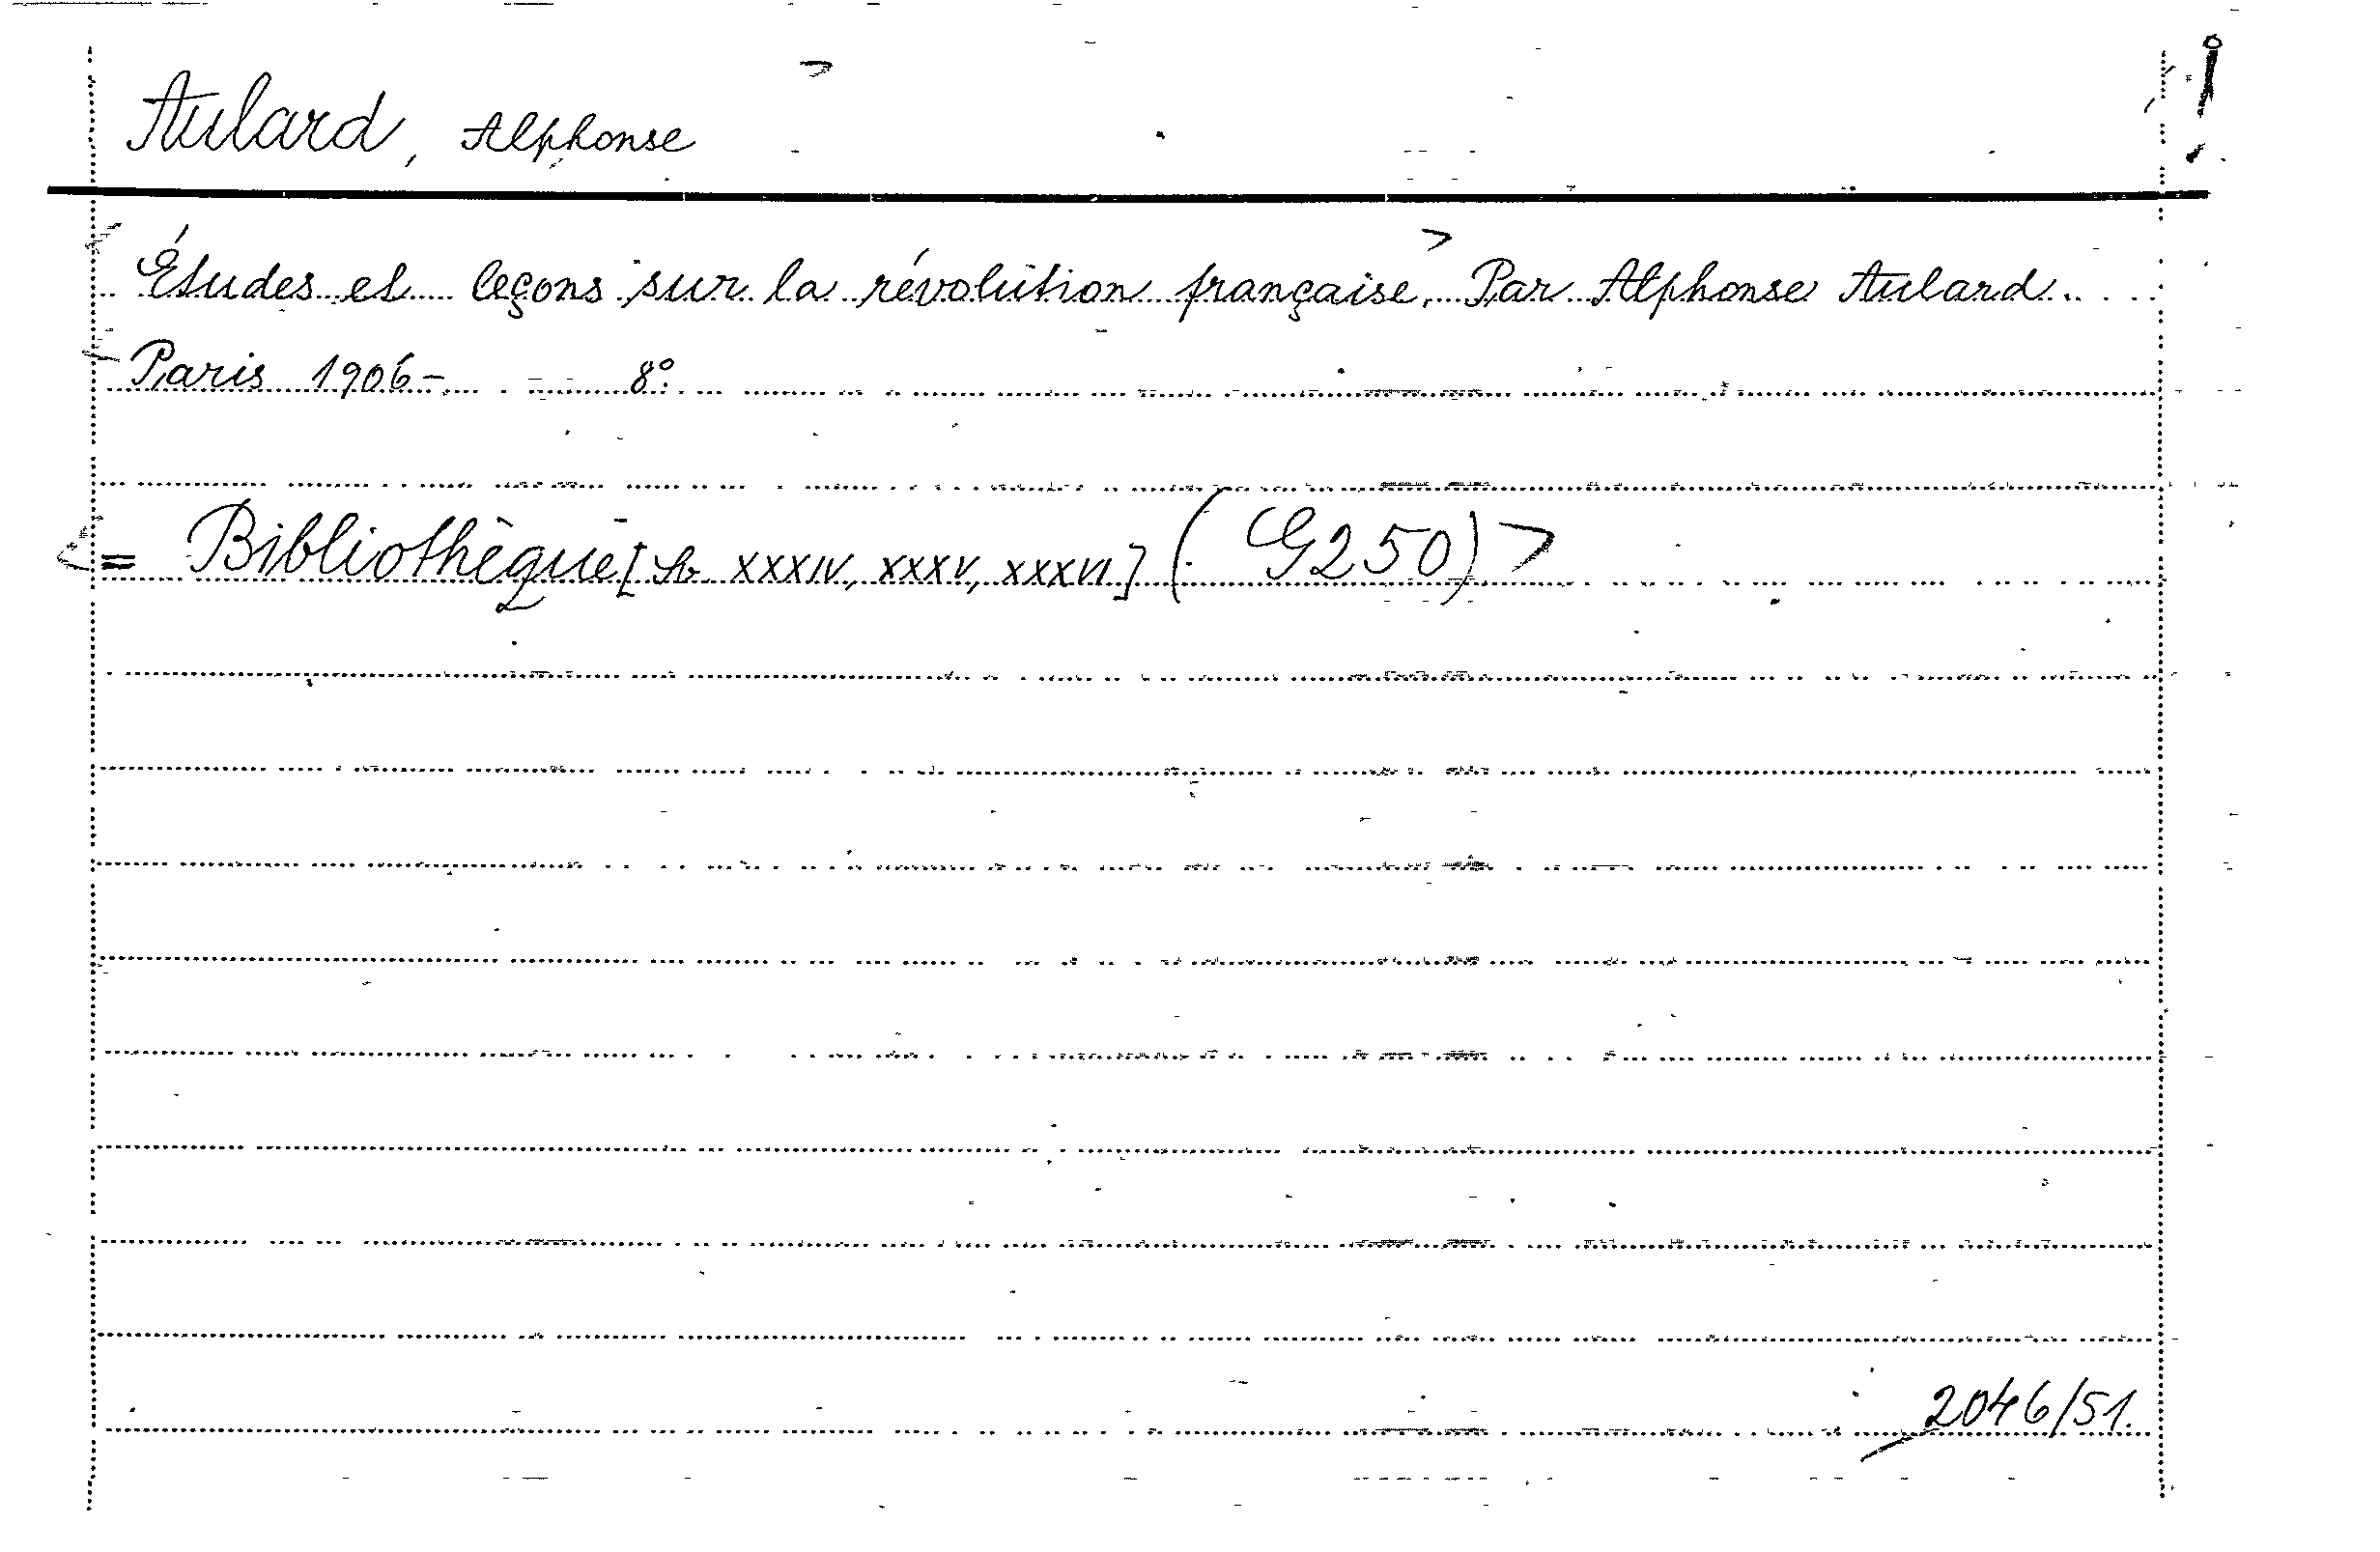 Aulard, Alphonse
Études et leçons sur la révolution française. Par Alphonse Aulard.
Paris 1906- 8°.
= Bibliothèque [ XXXIV, XXXV, XXXVI] (G250)
2046/51.